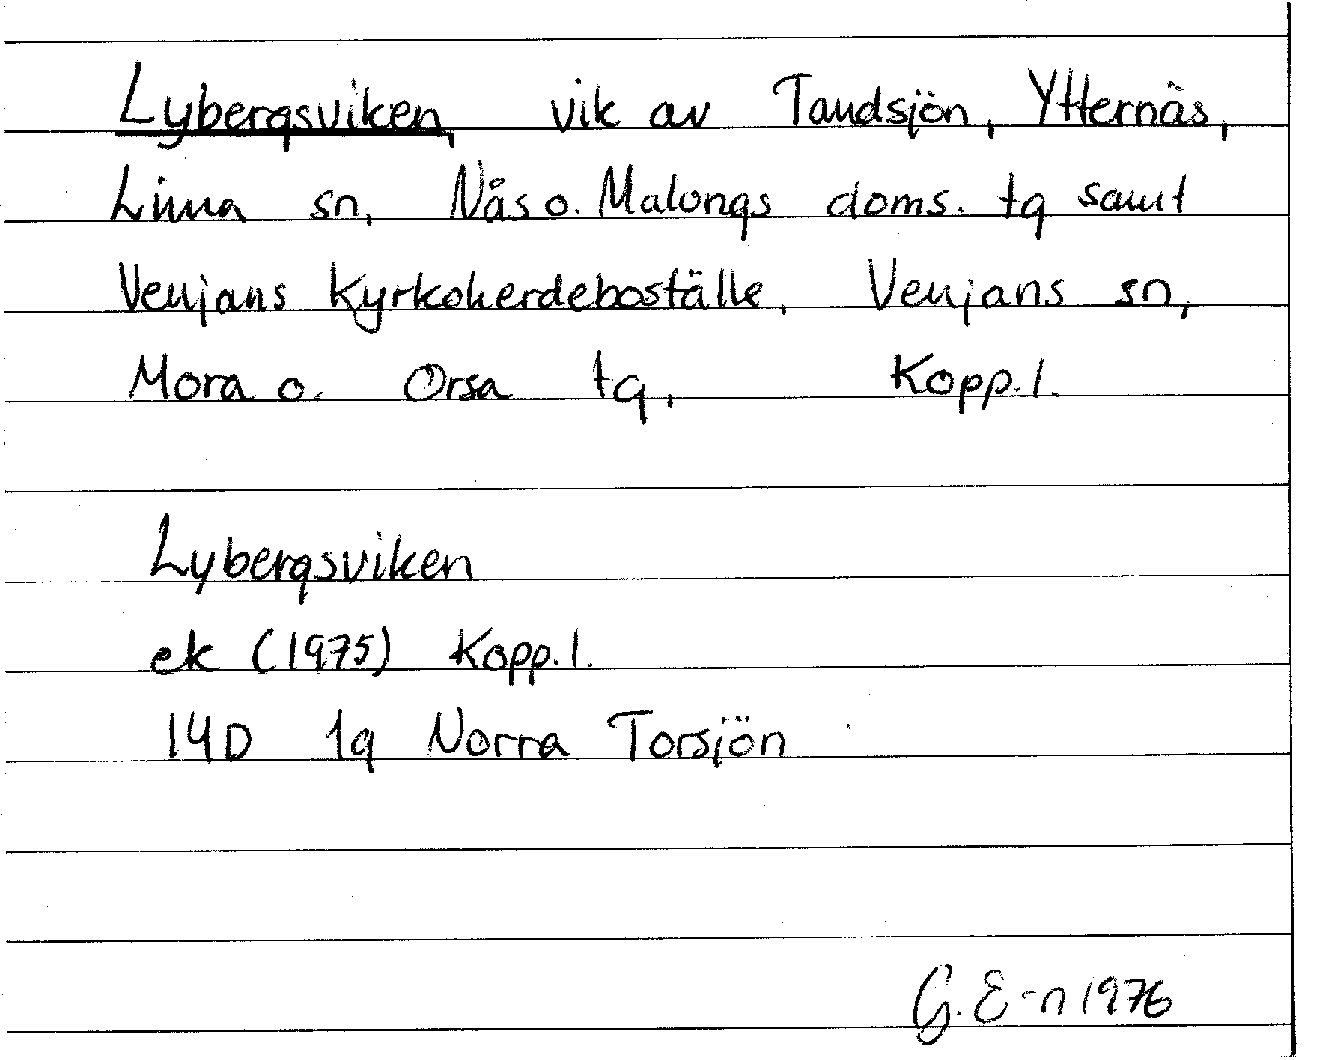 Lybergsviken, vik av Tandsjön, Ytternäs,
Lima sn, Nås o. Malungs doms. tg samt
Venjans Kyrkoherdeboställe, Venjans sn,
Mora o. Orsa tg, Kopp.l.
Lybergsviken
ek (1975) Kopp.l.
14D 1g Norra Torsjön
G. E-n 1976